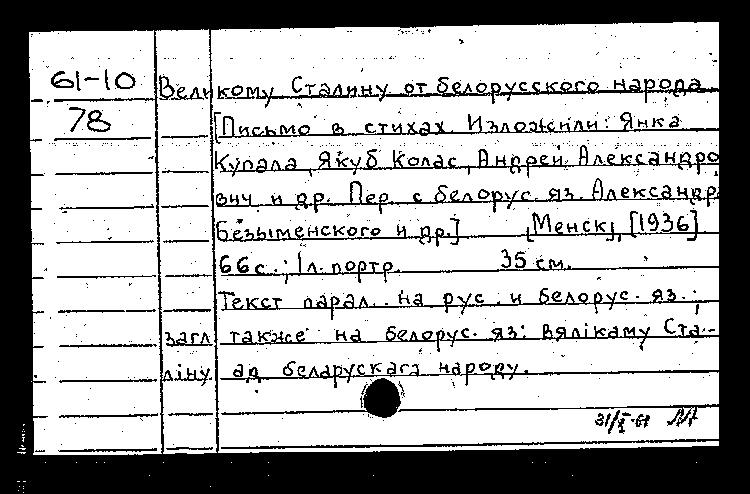 61-10 Великому Сталину от белорусского народа
78 [Письмо в стихах. Изложили: Янка
Купала, Якуб Колас, Андрей Александро
вич и др. Пер. с белорус. яз. Александр
Безыменского и др.] [Менск], [1936]
66 с.; 1 л. портр. 35 см.
Текст парал. на рус. и белорус. яз.;
загл. также на белорус. яз: Вялікаму Ста-
ліну ад беларускага народу.